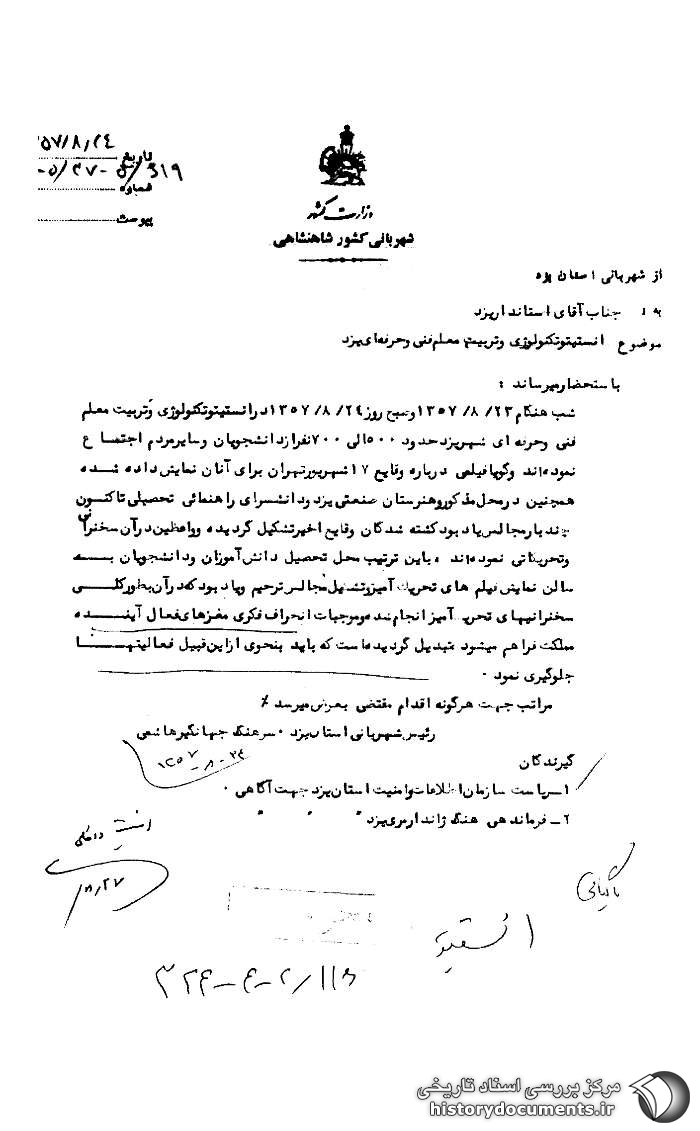 تاریخ ۵۷/۸/۲٤
شماره
پیوست
وزارت کشور
شهربانی کشور شاهنشاهی
از شهربانی استان یزد
به : جناب آقای استاندار یزد
موضوع انستیتو تکنولوژی و تربیت معلم فنی و حرفه ای یزد
باستحضار میرساند :
شب هنگام ۲۳/ ۸/ ۱۳۵۷ وصبح روز ۲٤/ ۸/ ۱۳۵۷ در انستیتو تکنولوژی و تربیت معلم
فنی وحرفه ای شهر یزد حدود ۵۰۰ الی ۷۰۰ نفر از دانشجویان وسایر مردم اجتماع
نموده اند وگویا فیلمی درباره وقایع ۱۷ شهریور تهران برای آنان نمایش داده شده
همچنین در محل مذکور وهنرستان صنعتی یزد ودانشسرای راهنمائی تحصیلی تاکنون
چند بار مجالس یاد بود کشته شدگان وقایع اخیر تشکیل گردیده وواعظین در آن سخنرانی
وتحریکاتی نموده اند ۰ باین ترتیب محل تحصیل دانش آموزان ودانشجویان بـه
سالن نمایش فیلم های تحریک آمیز وتشکیل مجالس ترحیم ویاد بود که در آن بطور کلی
سخنرانیهای تحریک آمیز انجام شده وموجبات انحراف فکری مغزهای فعال آینده
مملکت فراهم میشود تبدیل گردیده است که باید بنحوی از این قبیل فعالیتهـا
جلوگیری نمود ۰
مراتب جهت هرگونه اقدام مقتضی بعرض میرسد ٪
رئیس شهربانی استان یزد ۰ سرهنگ جهانگیر هاشمی
۱۳۵۷-۸-۲۴
گیرندگان
۱ـ ریاست سازمان اطلاعات وامنیت استان یزد جهت آگاهی ۰
۲ـ فرماندهی هنگ ژاندارمری یزد " " "
۸/۲۷
بایگانی
انستیتو
۳۲۴-۴-۲/۱۱۵
مرکز بررسی اسناد تاریخی
historydocuments.ir